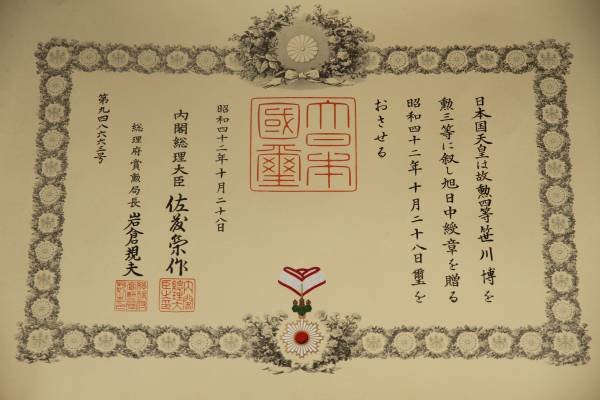 日本国天皇は故勲四等笹川博を
勲三等に叙し旭日中綬章を贈る
昭和四十二年十月二十八日璽を
おさせる
大日本
國璽
昭和四十二年十月二十八日
内閣総理大臣 佐藤榮作
内閣
総理大
臣之印
総理府賞勲局長 岩倉規夫
第九四八六六三号